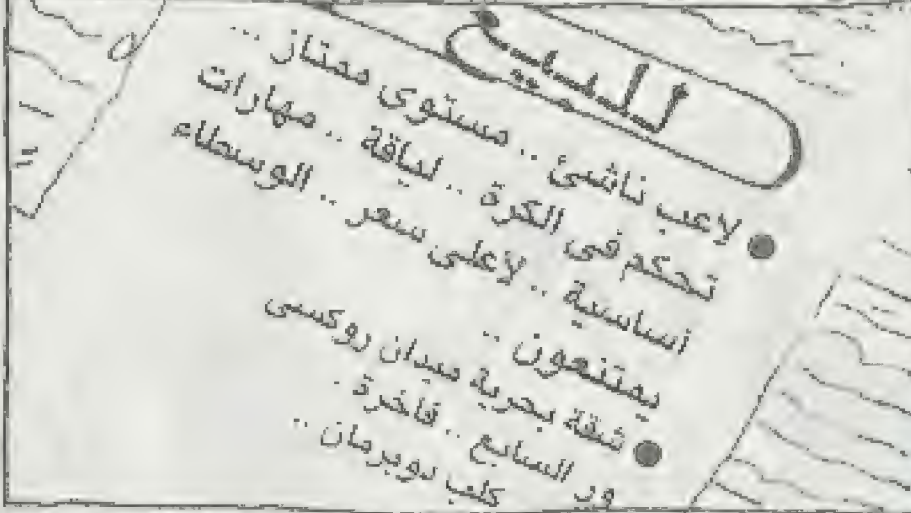 للبيع
● لاعب ناشئ .. مستوى ممتاز ...
تحكم فى الكرة .. لياقة .. مهارات
أساسية .. لأعلى سعر .. الوسطاء
يمتنعون ..
● شقة بحرية ميدان روكسى
ور السابع .. فاخرة .
كلب دوبرمان ..